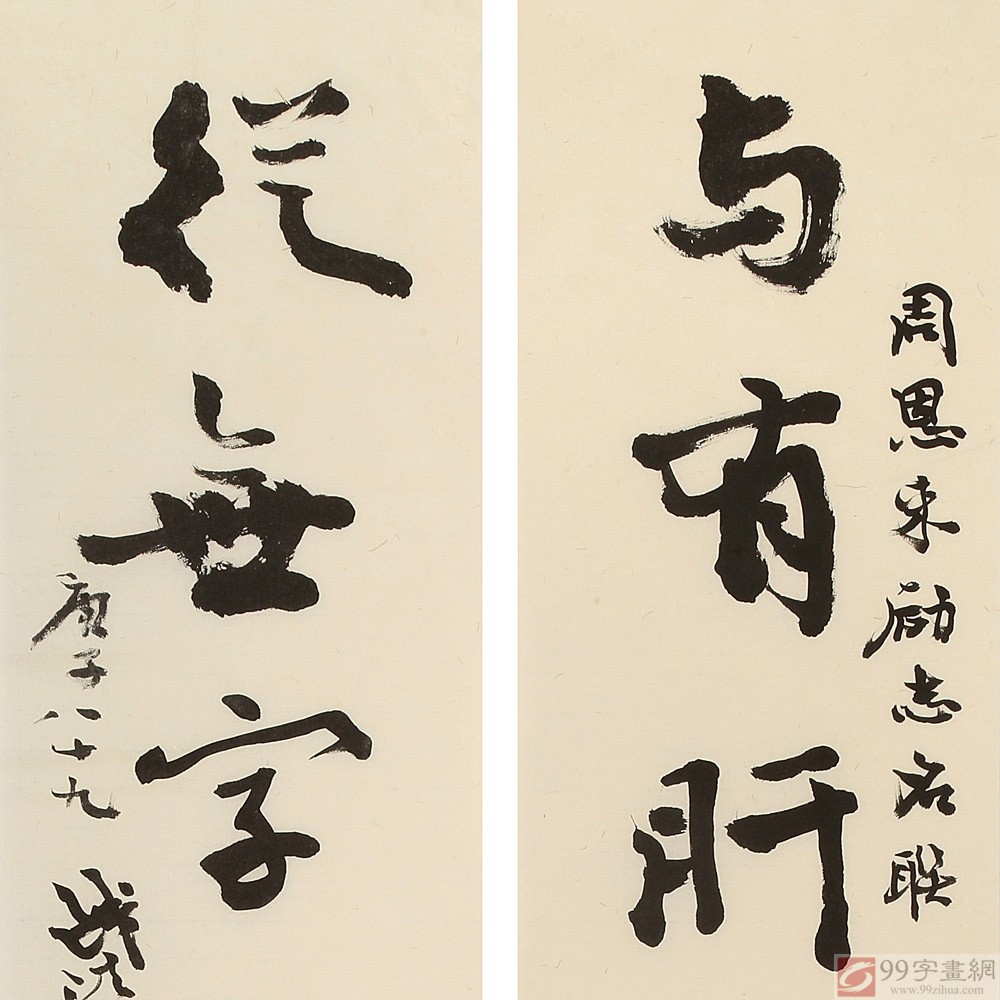 周恩来励志名联
与有肝
從無字
庚子八十九
99字畫網
www.99zihua.com